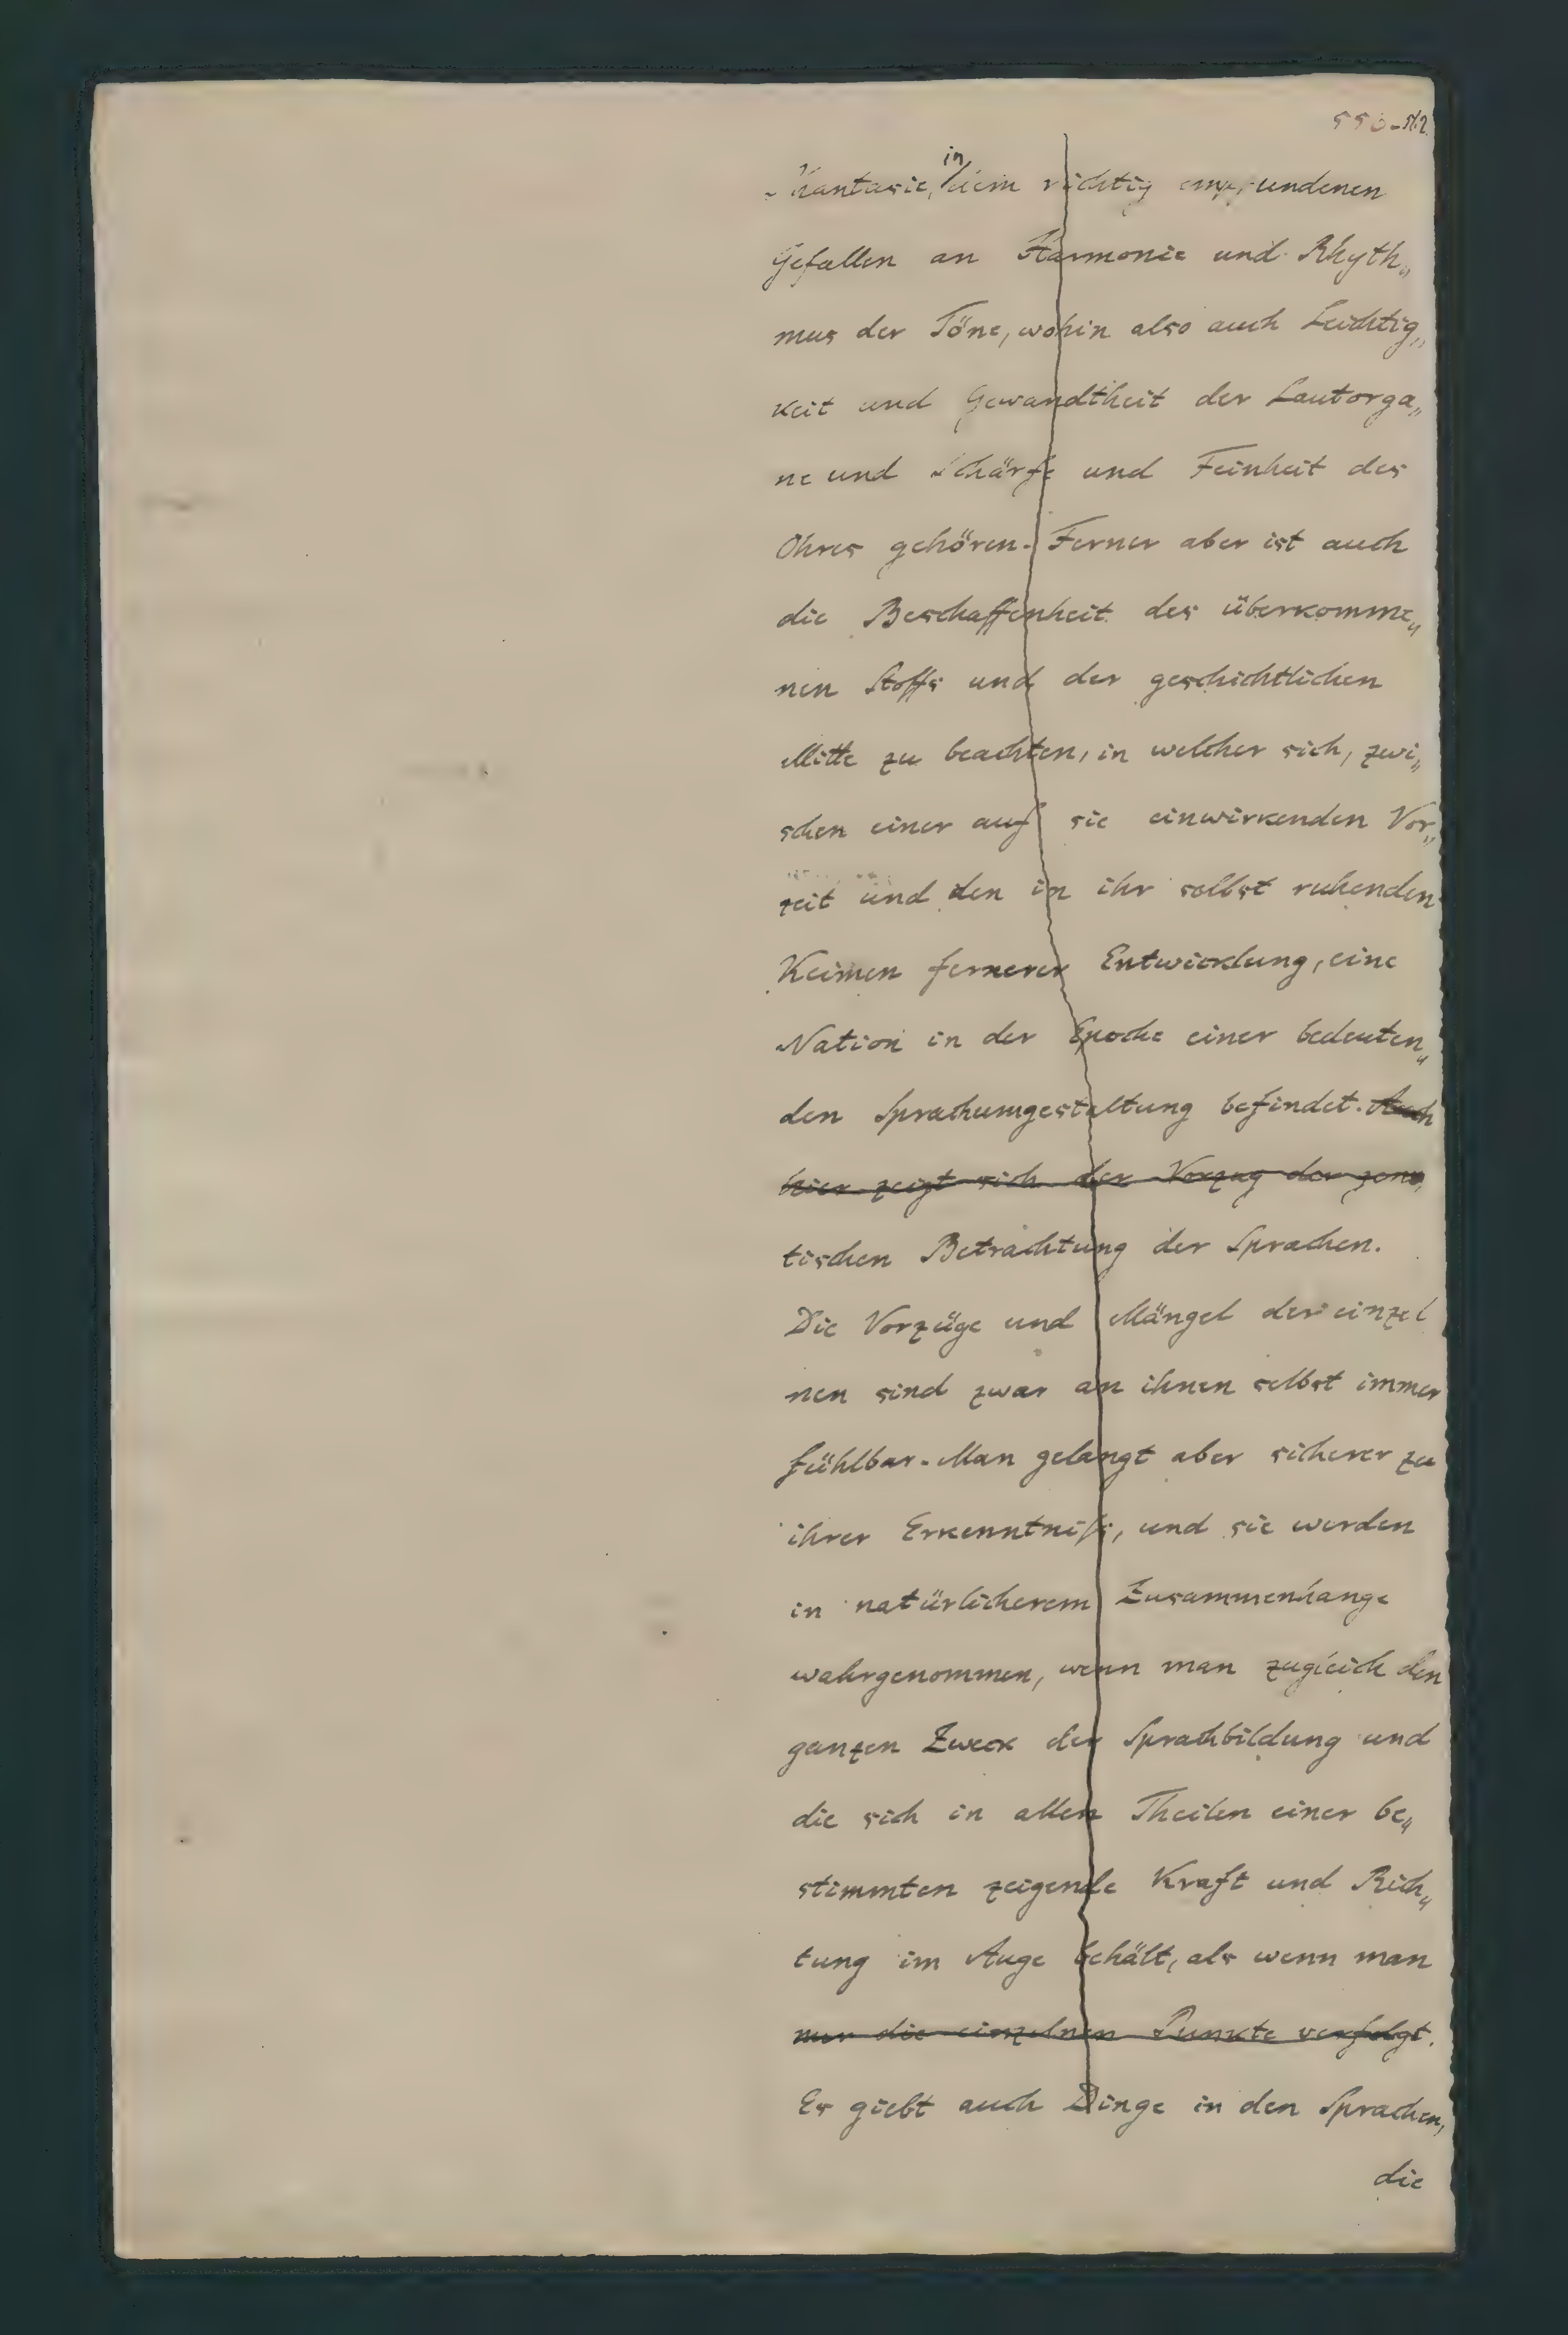 Phantasie, in dem richtig empfundenen
Gefallen an Harmonie und Rhyth„
mus der Töne, wohin also auch Leichtig„
keit und Gewandtheit der Lautorga„
ne und Schärfe und Feinheit des
Ohres gehören. Ferner aber ist auch
die Beschaffenheit des überkomme„
nen Stoffs und der geschichtlichen
Mitte zu beachten, in welcher sich, zwi„
schen einer auf sie einwirkenden Vor„
zeit und den in ihr selbst ruhenden
Keimen fernerer Entwicklung, eine
Nation in der Epoche einer bedeuten„
den Sprachumgestaltung befindet. Auch
hier zeigt sich der Vorzug der gene„
tischen Betrachtung der Sprachen.
Die Vorzüge und Mängel der einzel
nen sind zwar an ihnen selbst immer
fühlbar. Man gelangt aber sicherer zu
ihrer Erkenntniß, und sie werden
in natürlicherem Zusammenhange
wahrgenommen, wenn man zugleich den
ganzen Zweck der Sprachbildung und
die sich in allen Theilen einer be„
stimmten zeigende Kraft und Rich„
tung im Auge behält, als wenn man
nur die einzelnen Punkte verfolgt.
Es giebt auch Dinge in den Sprachen,
die